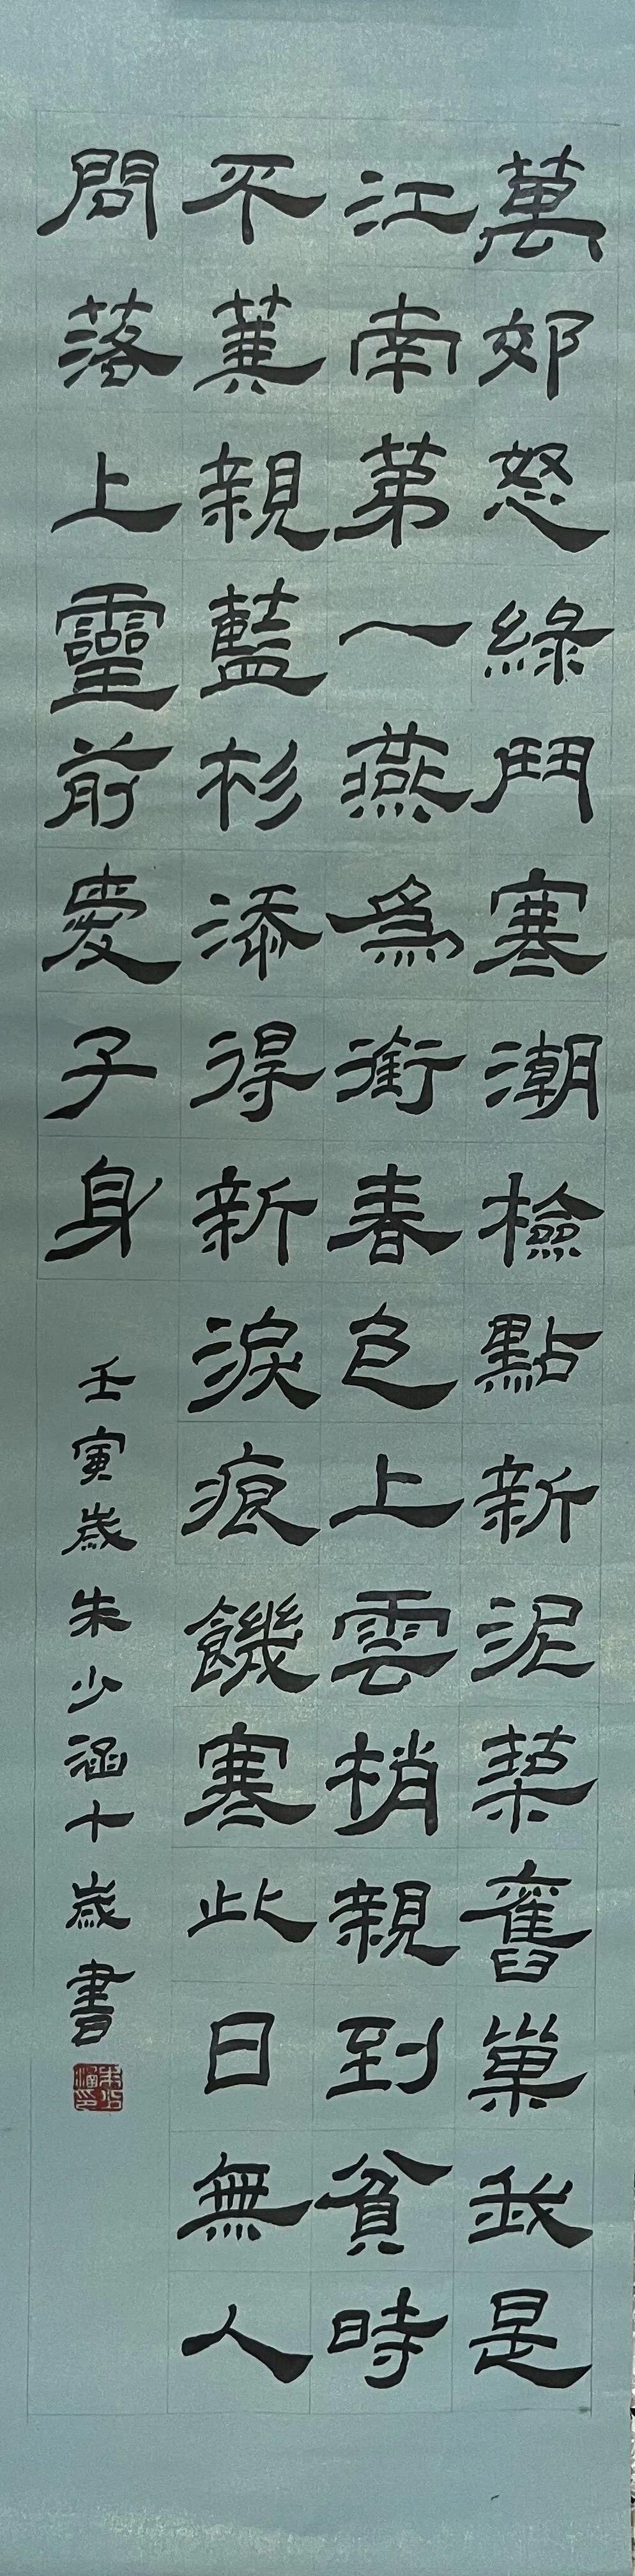 萬郊怒綠鬥寒潮檢點新泥築舊巢我是
江南第一燕為銜春色上雲梢親到貧時
不算親藍衫添得新淚痕饑寒此日無人
問落上靈前愛子身
壬寅歲朱少涵十歲書
朱少涵印